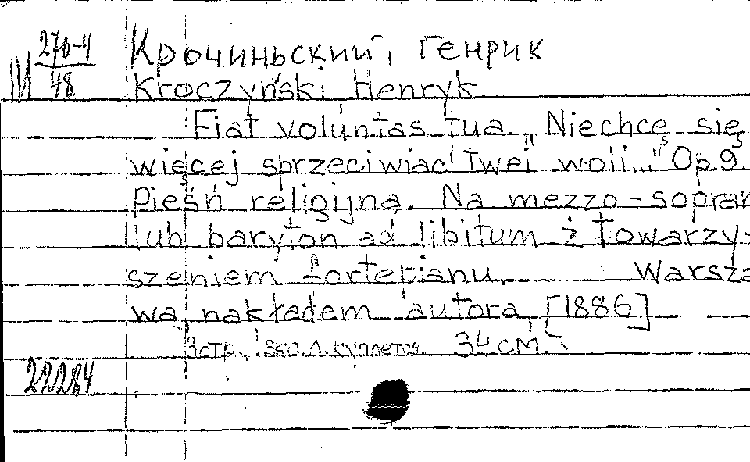 М 270-4
48
Крочиньский, Генрик
Kroczyński Henryk
Fiat voluntas tua „Niechcę się
więcej sprzeciwiać Twej woli..." Op.9.
Pieśń religijna. Na mezzo-sopran
lub baryton ad libitum z towarzy-
szeniem fortepianu. Warsza
wa, nakładem autora, [1886]
3 стр., загл. куплется. 34 см.
22284